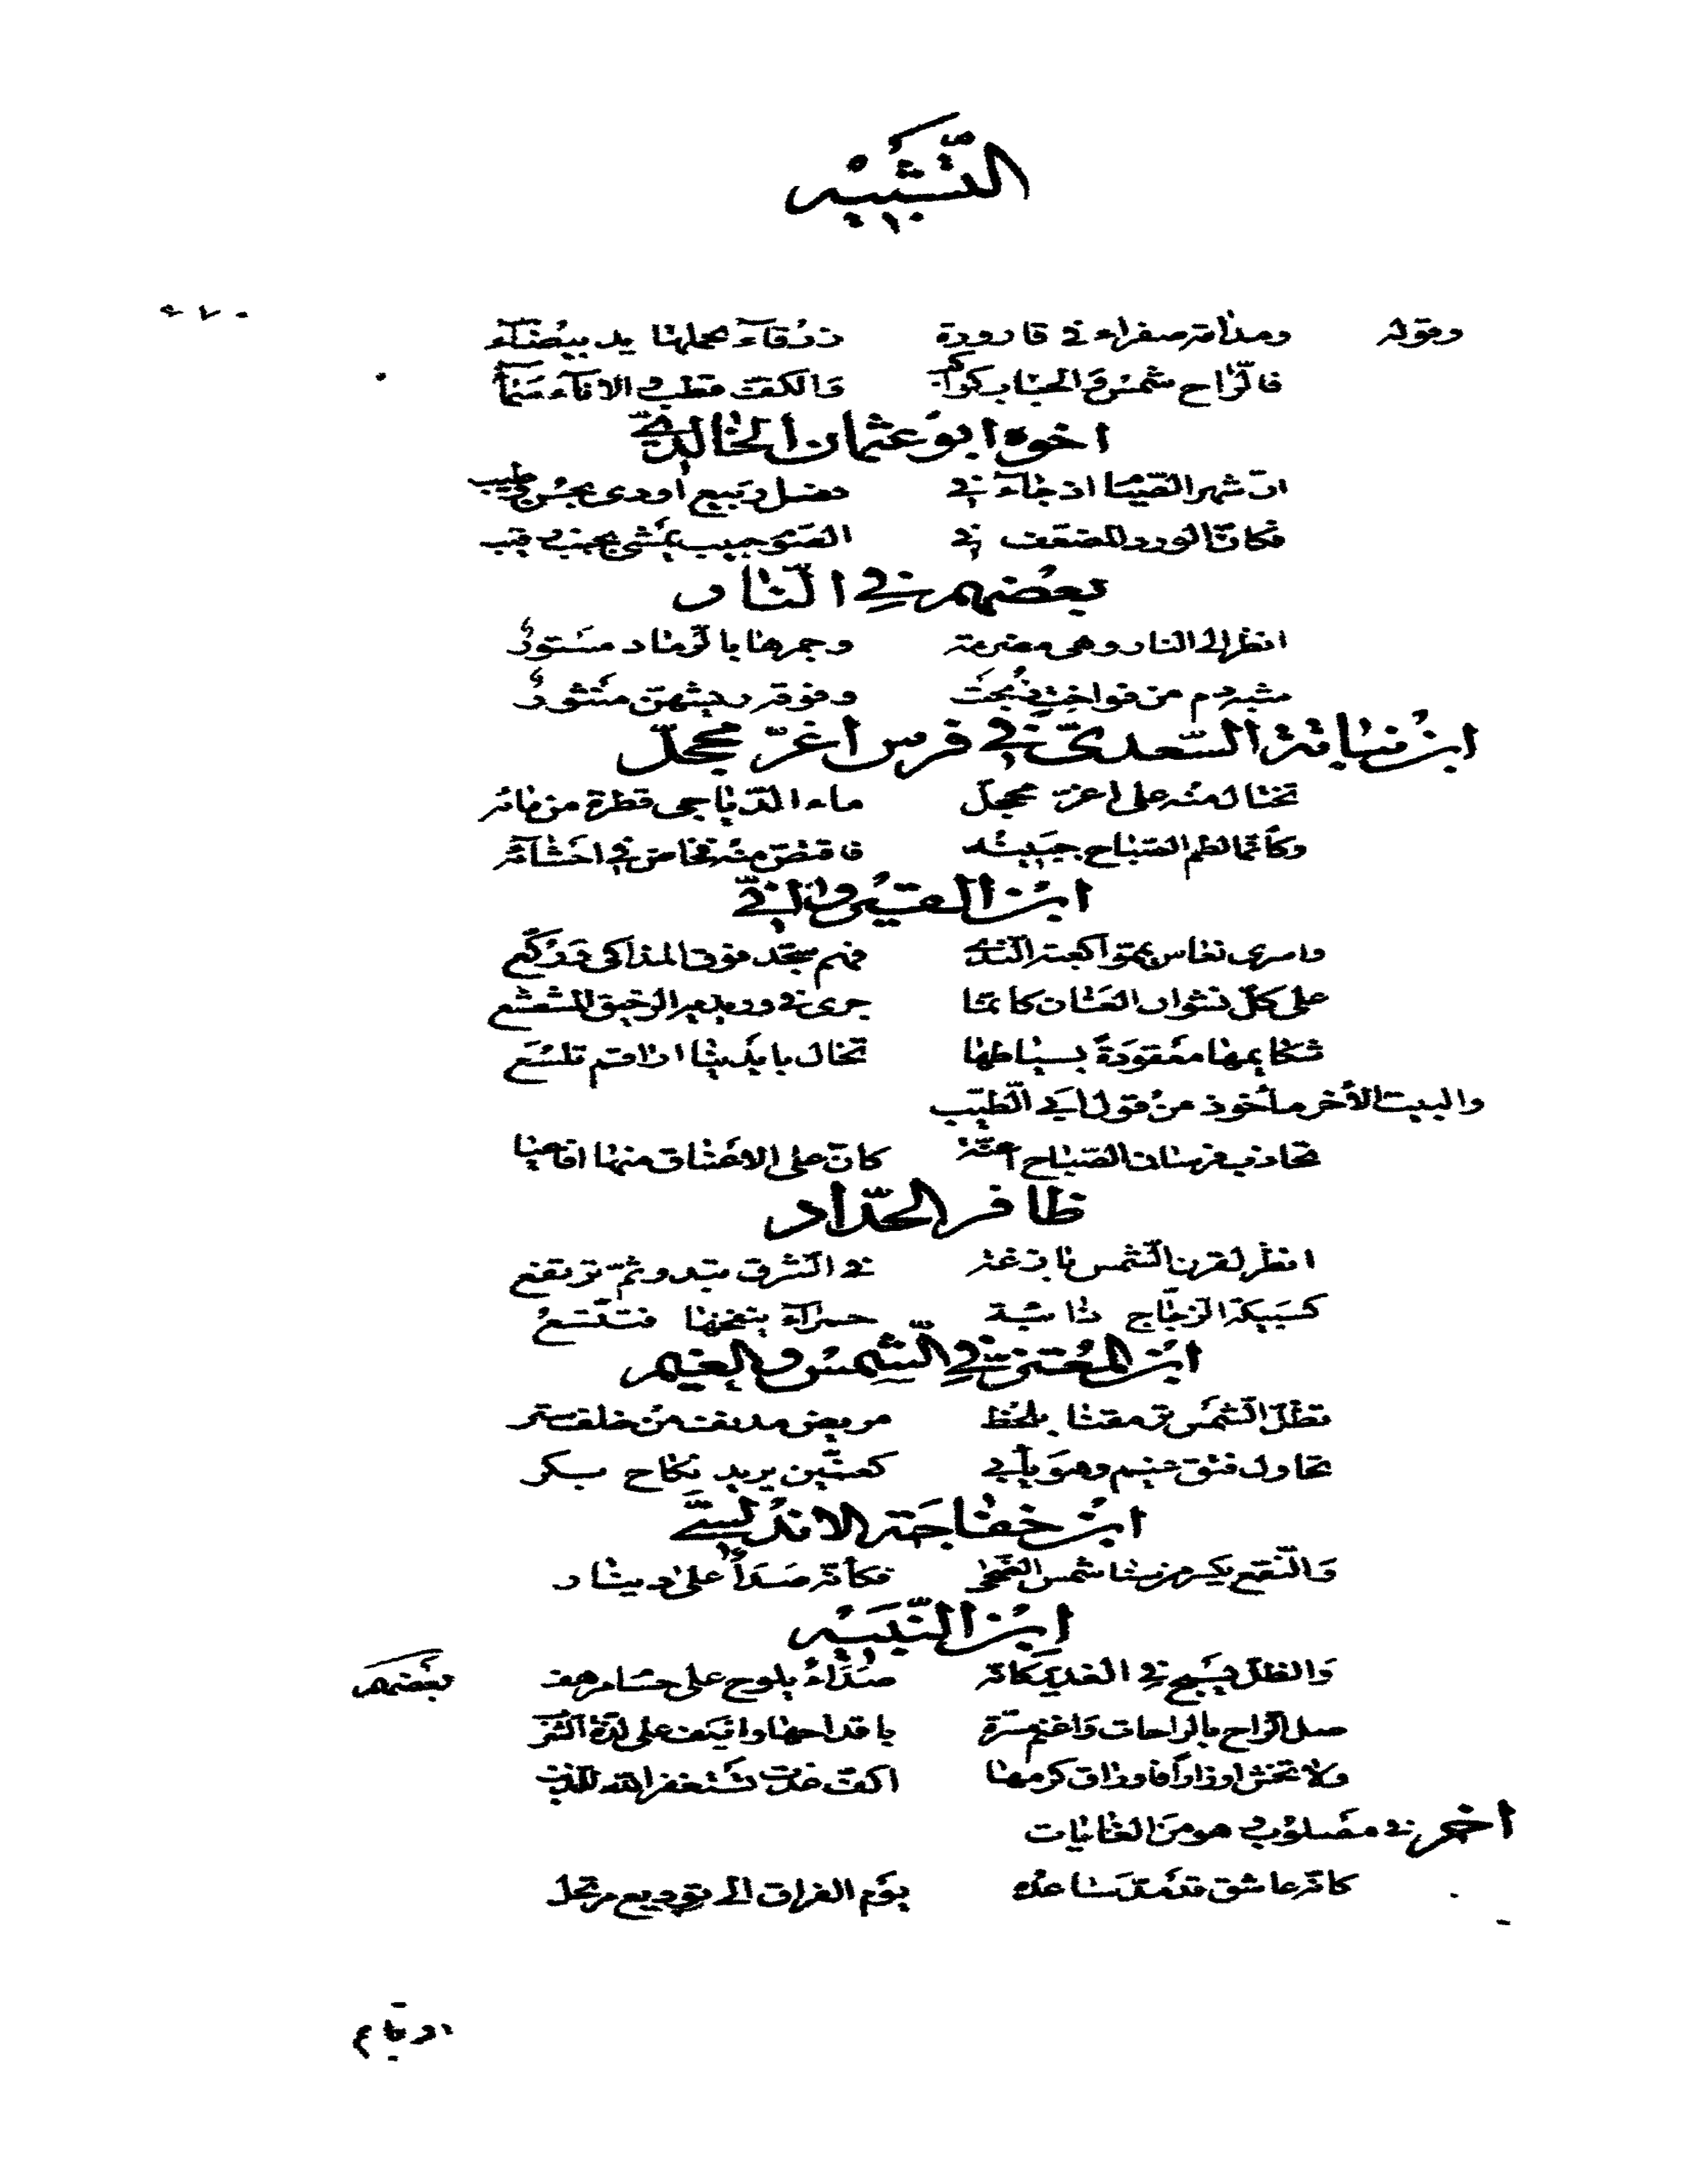 التّشبيه
وقوله ومدامة صفراء في قارورة زرقاء تحملها يد بيضاء
فالرّاح شمس والحباب كواكب والكفّ قطب والاناء سماء
اخوه ابو عثمان الخالديّ
انّ شهر الصّيام اذ جاء في فصل ربيع اودى بحسن وطيب
فكانّ الورد المضعّف في الصّوم حبيب يمشى بجنب رقيب
بعضهم في النّار
انظر الى النار وهى مضرمة وجمرها بالرّماد مستورُ
شبه دم من فواخت ذُبحت وفوقه ريشهنّ منثورُ
ابن نباتة السّعدىّ في فرس اغرّ محجّل
تختال منه على اغرّ محجّل ماء الدّياجى قطرة من مائه
وكأنّما لطم الصّباح جبينه فاقتصّ منه فخاض في احشائه
ابن القيروانيّ
واسرى نعاس يمّموا كعبة النّدى فهم سجّد فوق المذاكى وركّع
على كلّ نشوان العنان كانّما جرى في وريديه الرّحيق المشعشع
شكايمها معقودةً بسياطها تخال بايدينا اراقم تلسَع
والبيت الأخر مأخوذ من قول ابي الطّيّب
تجاذب فرسان الصّباح اعنّة كانّ على الاعناق منها افاعيا
ظافر الحدّاد
انظر لقرن الشّمس بازغة في الشّرق تبدو ثمّ ترتفع
كسبيكة الزّجّاج ذائبة حمراء ينفخها فتتّسعُ
ابن المعتز في الشّمس والغيم
تظلّ الشّمس ترمقنا بلحظ مريض مدنف من خلف ستر
تحاول فتق غيم وهو يأبي كعنّين يريد نكاح بكر
ابن خفاجة الاندلسيّ
والنّقع يكسر من سنا شمس الضّحى فكأنّه صدأ على دينار
ابن النّبيه
والظلّ يسبح في الغدير كانّه صدأ يلوح على حسام مرهف بعضهم
صل الرّاح بالراحات واغنم مسرّة باقداحها واعكف على لذّة الشّرب
ولا تخش اوزاراً فاوراق كرمها اكفّ غدت تستغفر اللّه للذّنب
اخر في مصلوب وهو من الغايات
كانّه عاشق قد مدّ ساعده يوم الفراق الى توديع مرتحل